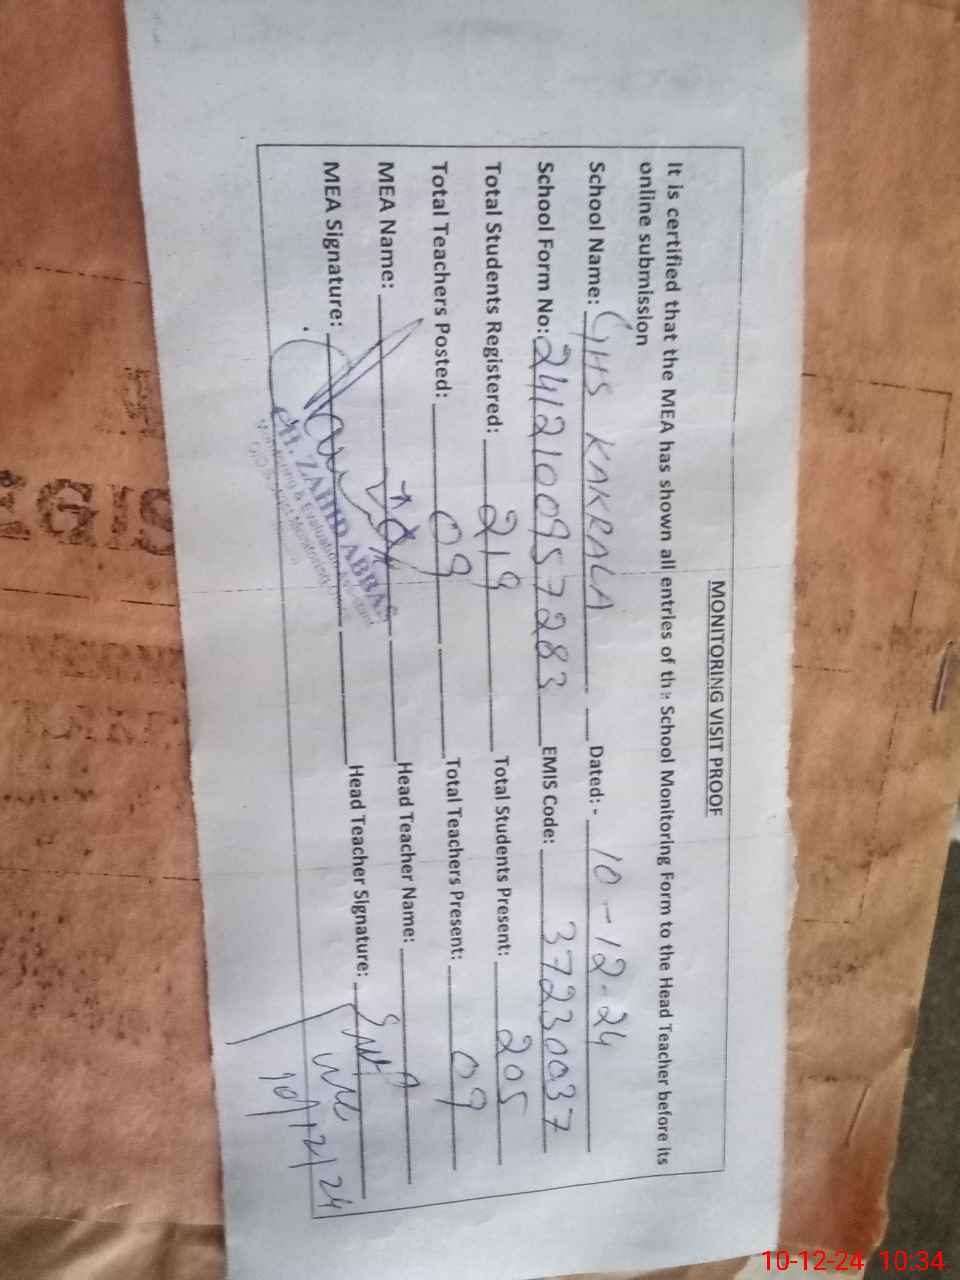 MONITORING VISIT PROOF
It is certified that the MEA has shown all entries of the School Monitoring Form to the Head Teacher before its
online submission
School Name: GHS KAKRALA Dated: - 10-12-24
School Form No: 2412100957283 EMIS Code: 37230037
Total Students Registered: 219 Total Students Present: 205
Total Teachers Posted: 09 Total Teachers Present: 09
MEA Name: Head Teacher Name:
MEA Signature: Head Teacher Signature:
10/12/24
ZAHID ABBAS
Monitoring & Evaluation Assistant
EGIS
10-12-24 10:34